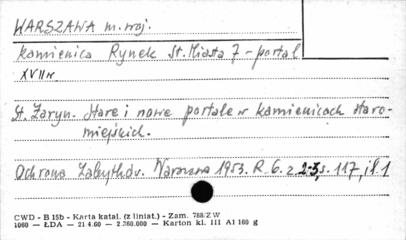 WARSZAWA m. woj.
kamienica Rynek St. Miasta 7 - portal
XVII w
St. Żaryn. Stare i nowe portale w kamienicach staro-
miejskich.
Ochrona Zabytków. Warszawa 1953. R. 6. z 2-3, s. 117, il. 1
CWD - B 15b - Karta katal. (z liniat.) - Zam. 788/ZW
1060 — ŁDA — 21 4.60 — 2.760.000 — Karton kl. III A1 160 g